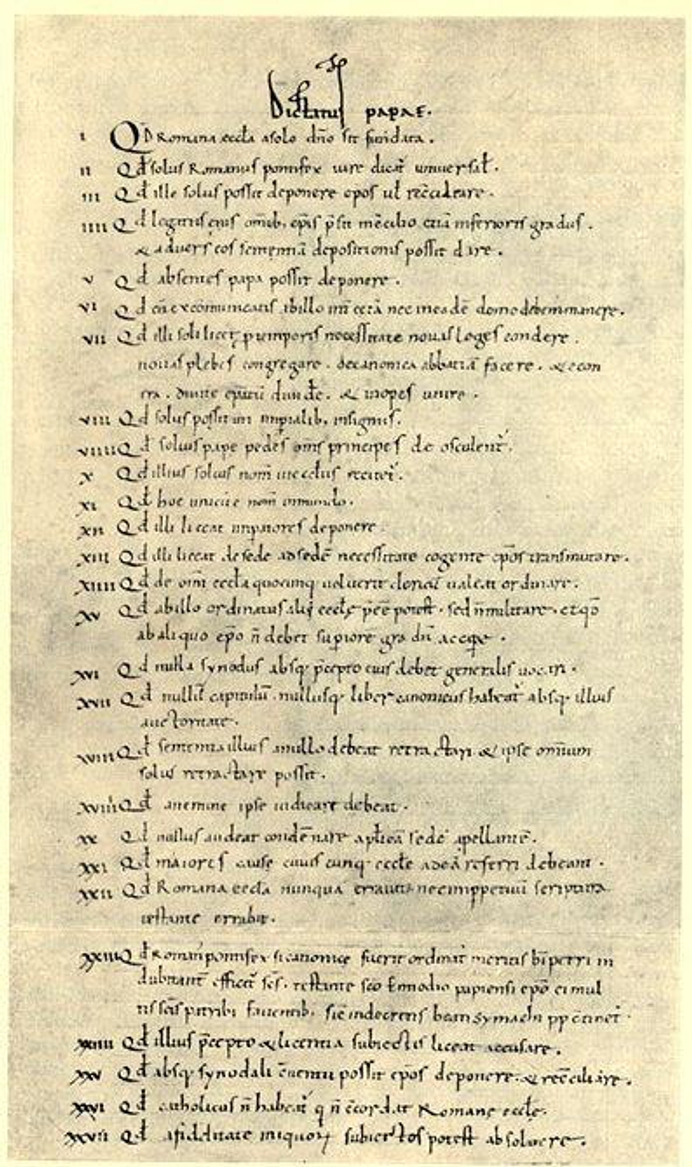 Dictatus papae.
I Qd Romana eccla a solo dno sit fundata.
II Qd solus Romanus pontifex iure dicat universal.
III Qd ille solus possit deponere epos vl reconciliare.
IIII Qd legatus eius omib; epis psit in concilio etiã inferioris gradus.
& adversus eos sententiã depositionis possit dare.
V Qd absentes papa possit deponere.
VI Qd cũ excõmunicatis ab illo int cetã nec in eadẽ domo debem manere.
VII Qd illi soli licet p temporis necessitate novas leges condere.
novas plebes congregare. de canonica abbatiã facere. & econ
tra. divite epatũ divide. & inopes unire.
VIII Qd solus possit uti impialib; insigniis.
VIIII Qd solius pape pedes oms principes deosculent.
X Qd illius solius nom in ecclus recitet.
XI Qd hoc unicũ e nom in mundo.
XII Qd illi liceat impatores deponere.
XIII Qd illi liceat de sede ad sedẽ necessitate cogente epos transmutare.
XIIII Qd de omi eccla quocunq voluerit clericũ valeat ordinare.
XV Qd ab illo ordinatus alii eccle pẽe potest. sed ñ militare. et qd
ab aliquo epo ñ debet supiore gradũ accipe.
XVI Qd nulla synodus absq pcepto eius debet generalis vocari.
XVII Qd nullũ capitulũ nullusq liber canonicus habeat absq illius
auctoritate.
XVIII Qd sententia illius a nullo debeat retractari & ipse omium
solus retractare possit.
XVIIII Qd a nemine ipse iudicare debeat.
XX Qd nullus audeat condẽnare aplicã sedẽ apellantẽ.
XXI Qd maiores cause cuiuscunq eccle ad eã referri debeant.
XXII Qd Romana eccla nunquã erravit nec imppetuũ scriptura
testante errabit.
XXIII Qd Roman pontifex si canonice fuerit ordinat meritis bi petri in
dubitant efficit scs. testante sco Ennodio papiensi epo ei mul
tis scis patribs faventib. sic in decretis beati Symachi pp continet.
XXIIII Qd illius pcepto & licentia subiectis liceat accusare.
XXV Qd absq synodali cũventu possit epos deponere & recõciliare.
XXVI Qd catholicus ñ habeat q ñ cõcordat Romane eccle.
XXVII Qd a fidelitate iniquoꝝ subiectos potest absolvere.